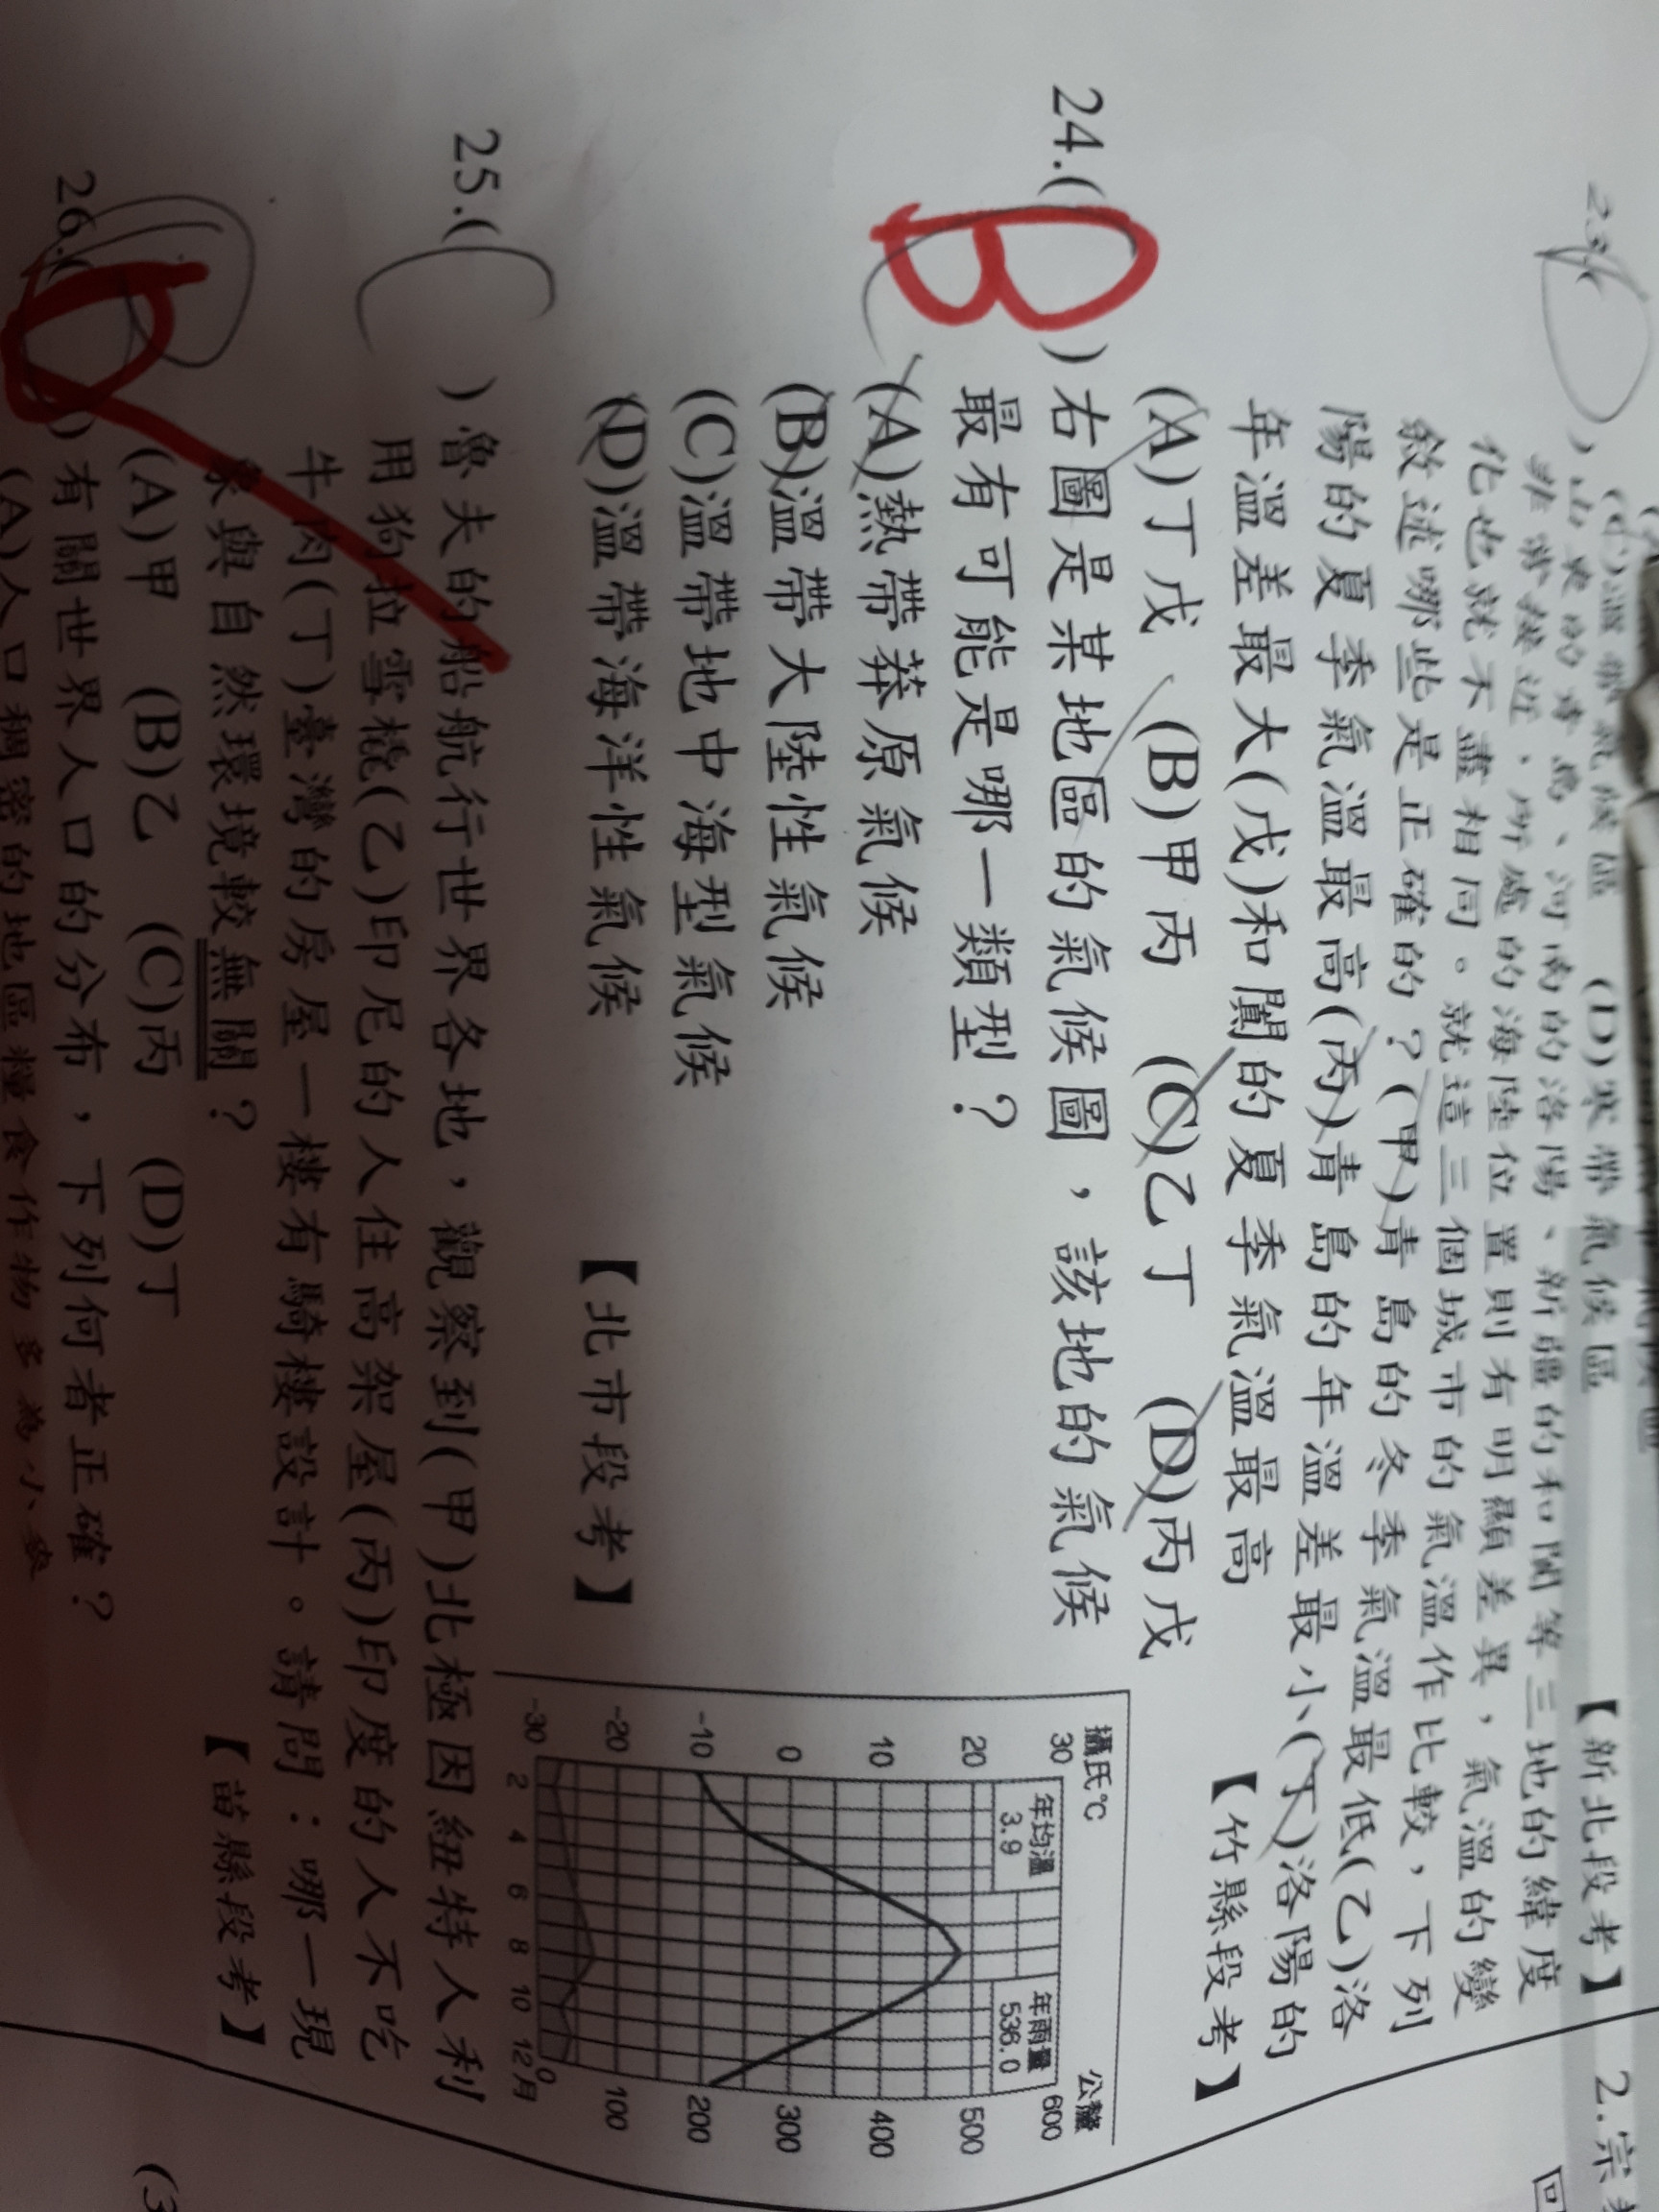 (D)寒帶氣候區
【新北段考】
)山東的青島、河南的洛陽、新疆的和闐等三地的緯度
非常接近，所處的海陸位置則有明顯差異，氣溫的變
化也就不盡相同。就這三個城市的氣溫作比較，下列
敘述哪些是正確的？(甲)青島的冬季氣溫最低(乙)洛
陽的夏季氣溫最高(丙)青島的年溫差最小(丁)洛陽的
年溫差最大(戊)和闐的夏季氣溫最高
【竹縣段考】
(A)丁戊 (B)甲丙 (C)乙丁 (D)丙戊
24.(B)右圖是某地區的氣候圖，該地的氣候
最有可能是哪一類型？
(A)熱帶莽原氣候
(B)溫帶大陸性氣候
(C)溫帶地中海型氣候
(D)溫帶海洋性氣候
【北市段考】
攝氏℃ 公釐
年均溫 3.9
年雨量 536.0
30 600
20 500
10 400
0 300
-10 200
-20 100
-30 0
2 4 6 8 10 12月
25.( )魯夫的船航行世界各地，觀察到(甲)北極因紐特人利
用狗拉雪橇(乙)印尼的人住高架屋(丙)印度的人不吃
牛肉(丁)臺灣的房屋一樓有騎樓設計。請問：哪一現
象與自然環境較無關？
【苗縣段考】
(A)甲 (B)乙 (C)丙 (D)丁
26.( )有關世界人口的分布，下列何者正確？
(A)人口稠密的地區糧食作物多為小麥
2.宗
(3